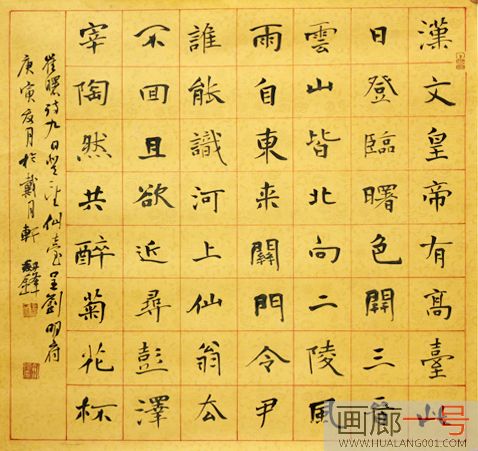 漢文皇帝有髙臺此
日登臨曙色開三晉
雲山皆北向二陵風
雨自東来關門令尹
誰能識河上仙翁去
不回且欲近尋彭澤
宰陶然共醉菊花杯
崔曙詩九日登望仙臺呈劉明府
庚寅月於戴月軒
画廊一号
WWW.HUALANG001.COM